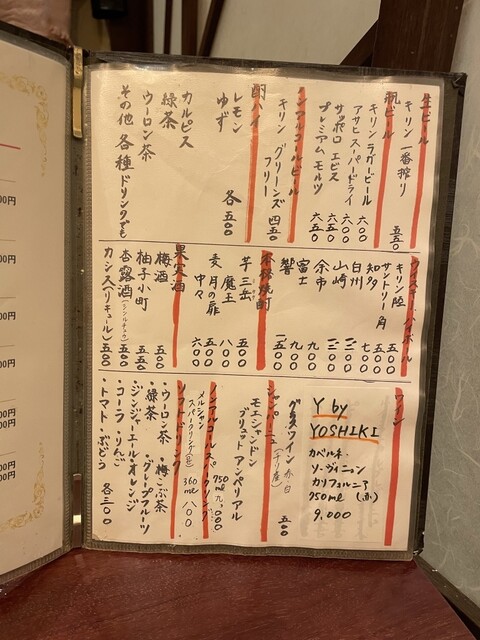 生ビール
キリン 一番搾り 五五〇
瓶ビール
キリン ラガービール 六〇〇
アサヒ スーパードライ 六〇〇
サッポロ ヱビス 六五〇
プレミアム モルツ 六五〇
ノンアルコールビール
キリン グリーンズフリー 四五〇
酎ハイ
レモン
ゆず 各 五〇〇
カルピス
緑茶
ウーロン茶
その他 各種ドリンクでも
ウイスキー・ハイボール
キリン 陸 五〇〇
サントリー 角 五〇〇
知多 七〇〇
白州
山崎
余市 九〇〇
富士 九〇〇
響
本格焼酎
芋 三岳 五〇〇
魔王 八〇〇
麦 月の扉 五〇〇
中々 六〇〇
果実酒
梅酒 五〇〇
柚子小町 五五〇
杏露酒(シンルチュウ) 五〇〇
カシス(リキュール) 五〇〇
ワイン
Y by
YOSHIKI
カベルネ・
ソーヴィニョン
カリフォルニア
750ml (赤)
9,000
グラスワイン 赤白 (チリ産) 五〇〇
シャンパーニュ
モエシャンドン
ブリュット アンペリアル
750ml 九,〇〇〇
ノンアルコールスパークリング
メルシャン
スパークリング(白) 360ml 八〇〇
ソフトドリンク
・ウーロン茶 ・梅こぶ茶
・緑茶 ・グレープフルーツ
・ジンジャーエール・オレンジ
・コーラ ・りんご
・トマト ・ぶどう 各三〇〇